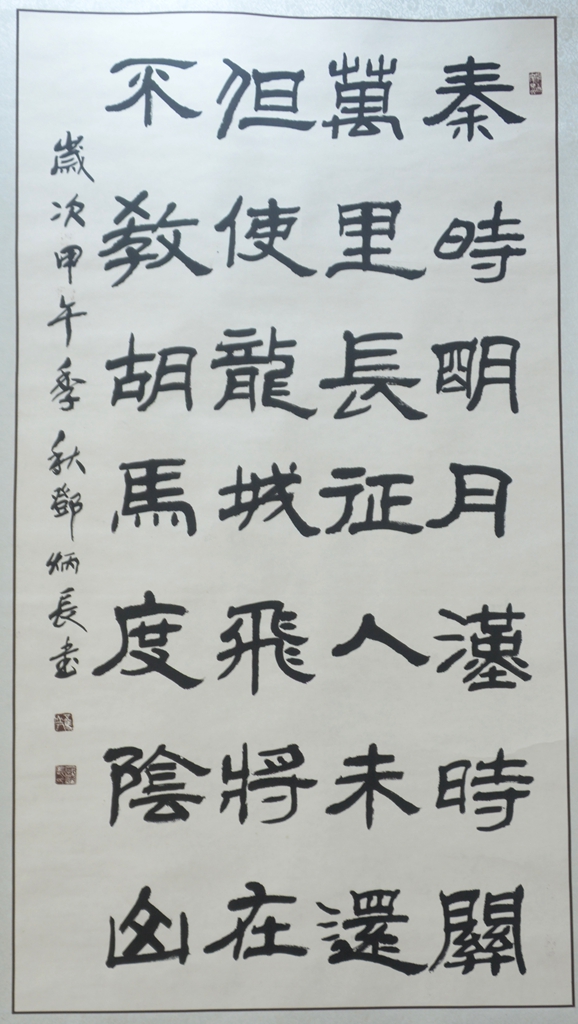 秦時明月漢時關
萬里長征人未還
但使龍城飛將在
不教胡馬度陰山
歲次甲午季秋鄧炳長書